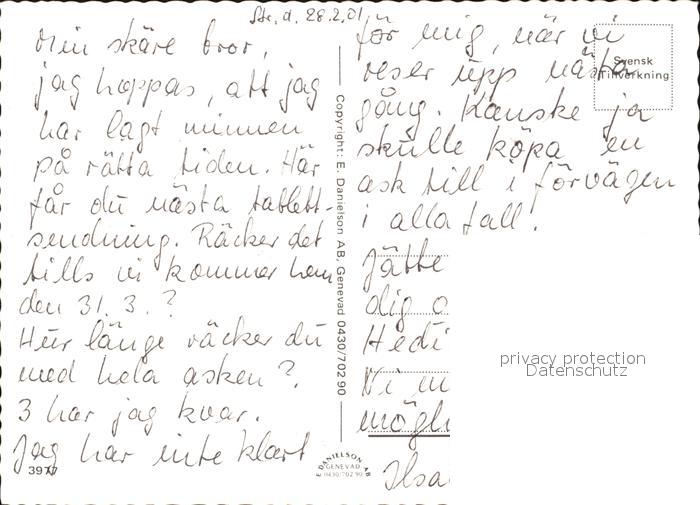 Str. d. 28.2.01
Min skäre bror,
jag hoppas, att jag
har lagt minnen
på rätta tiden. Här
får du nästa tablett-
sendning. Räcker det
tills vi kommer hem
den 31. 3. ?
Hur länge räcker du
med hela asken ?
3 har jag kvar.
Jag har inte klart
3977
Copyright: E. Danielson AB, Genevad 0430/702 90
E DANIELSON AB
GENEVAD
0430/702 90
för mig, när vi
reser upp nästa
gång. Kanske ja
skulle köpa en
ask till i förvägen
i alla fall!
Jätte
dig
Hedi
Vi
mögli
Ilsa
Svensk
Tillverkning
privacy protection
Datenschutz